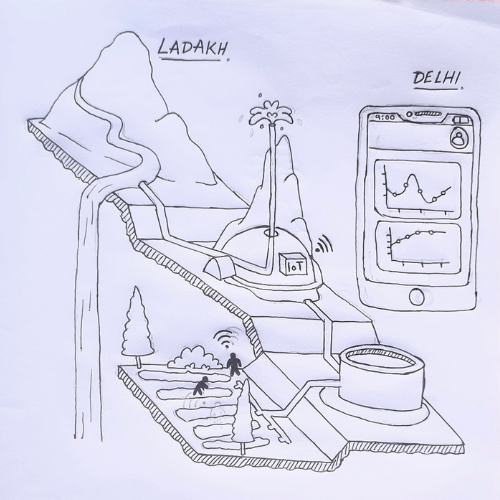 LADAKH.
DELHI.
9:00
IoT